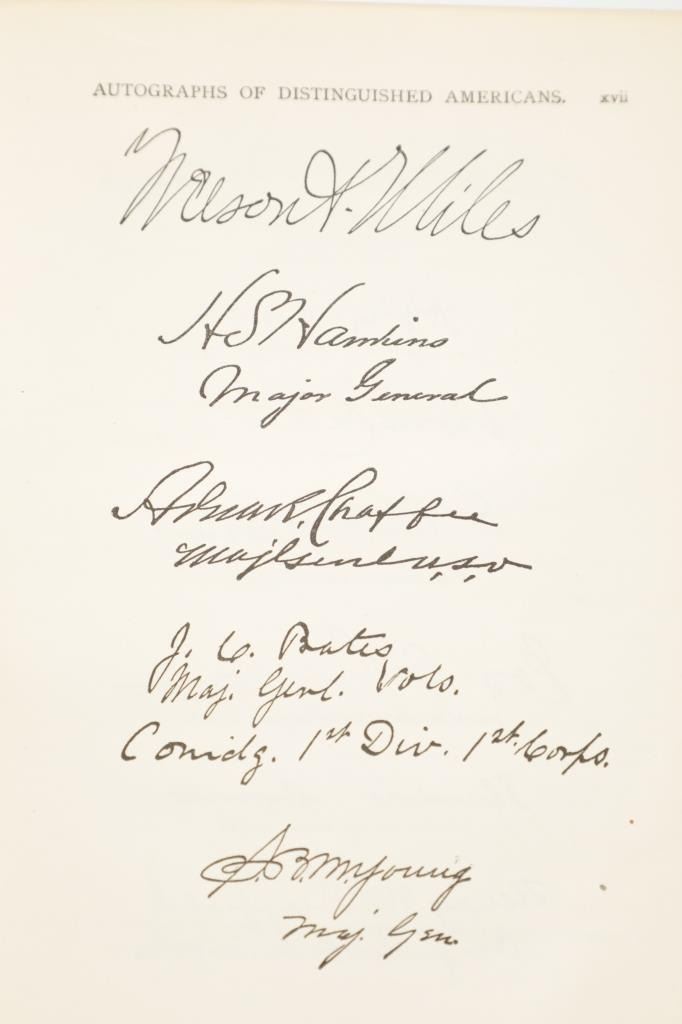 AUTOGRAPHS OF DISTINGUISHED AMERICANS. xvii
Nelson A. Miles
H S Hawkins
Major General
Adna R. Chaffee
Maj Genl U.S.V
J. C. Bates
Maj. Genl. Vols.
Comdg. 1st Div. 1st Corps.
S. B. M. Young
Maj. Gen.